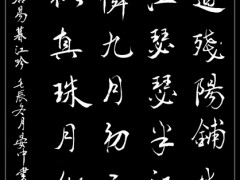 道殘陽鋪水
江瑟瑟半江
憐九月初三
似真珠月似
易暮江吟 壬辰冬月